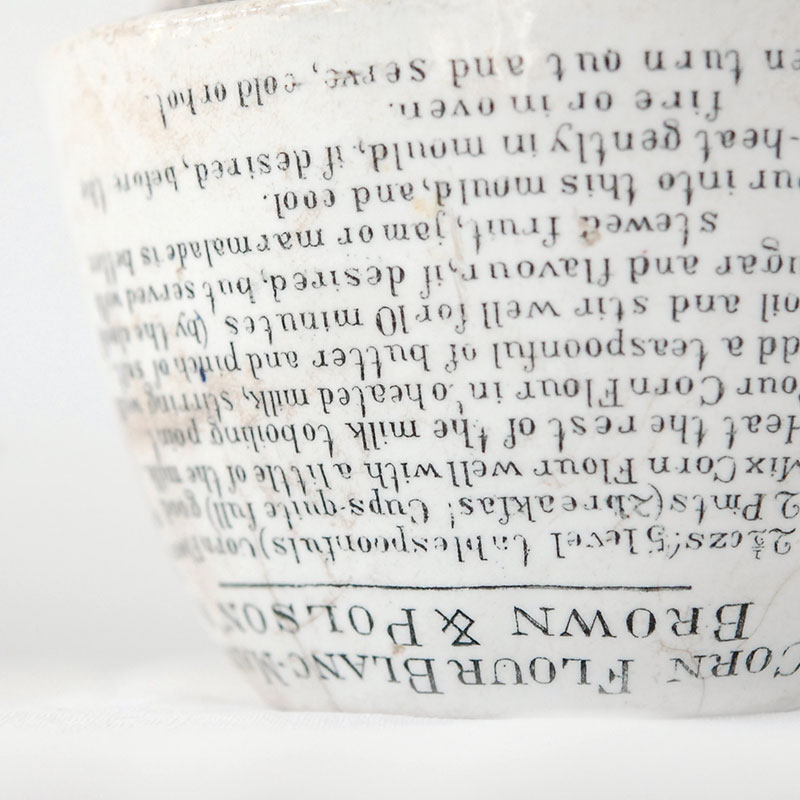 CORN FLOUR BLANC-M
BROWN & POLSON
2½ ozs. (5 level tablespoonfuls) Corn
2 Pints (2 breakfast Cups quite full) good
Mix Corn Flour well with a little of the milk
Heat the rest of the milk to boiling point
our Corn Flour in to heated milk, stirring well
dd a teaspoonful of butter and pinch of salt
oil and stir well for 10 minutes (by the clock
gar and flavour, if desired, but served with
stewed fruit, jam or marmalade is better
our into this mould, and cool.
-heat gently in mould, if desired, before the
fire or in oven.
en turn out and serve, cold or hot.